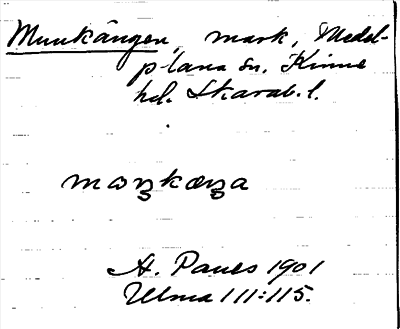 Munkängen, mark, Medel-
plana sn. Kinne
hd. Skarab.l.
moŋkæŋa
A. Paues 1901
Ulma 111:115.